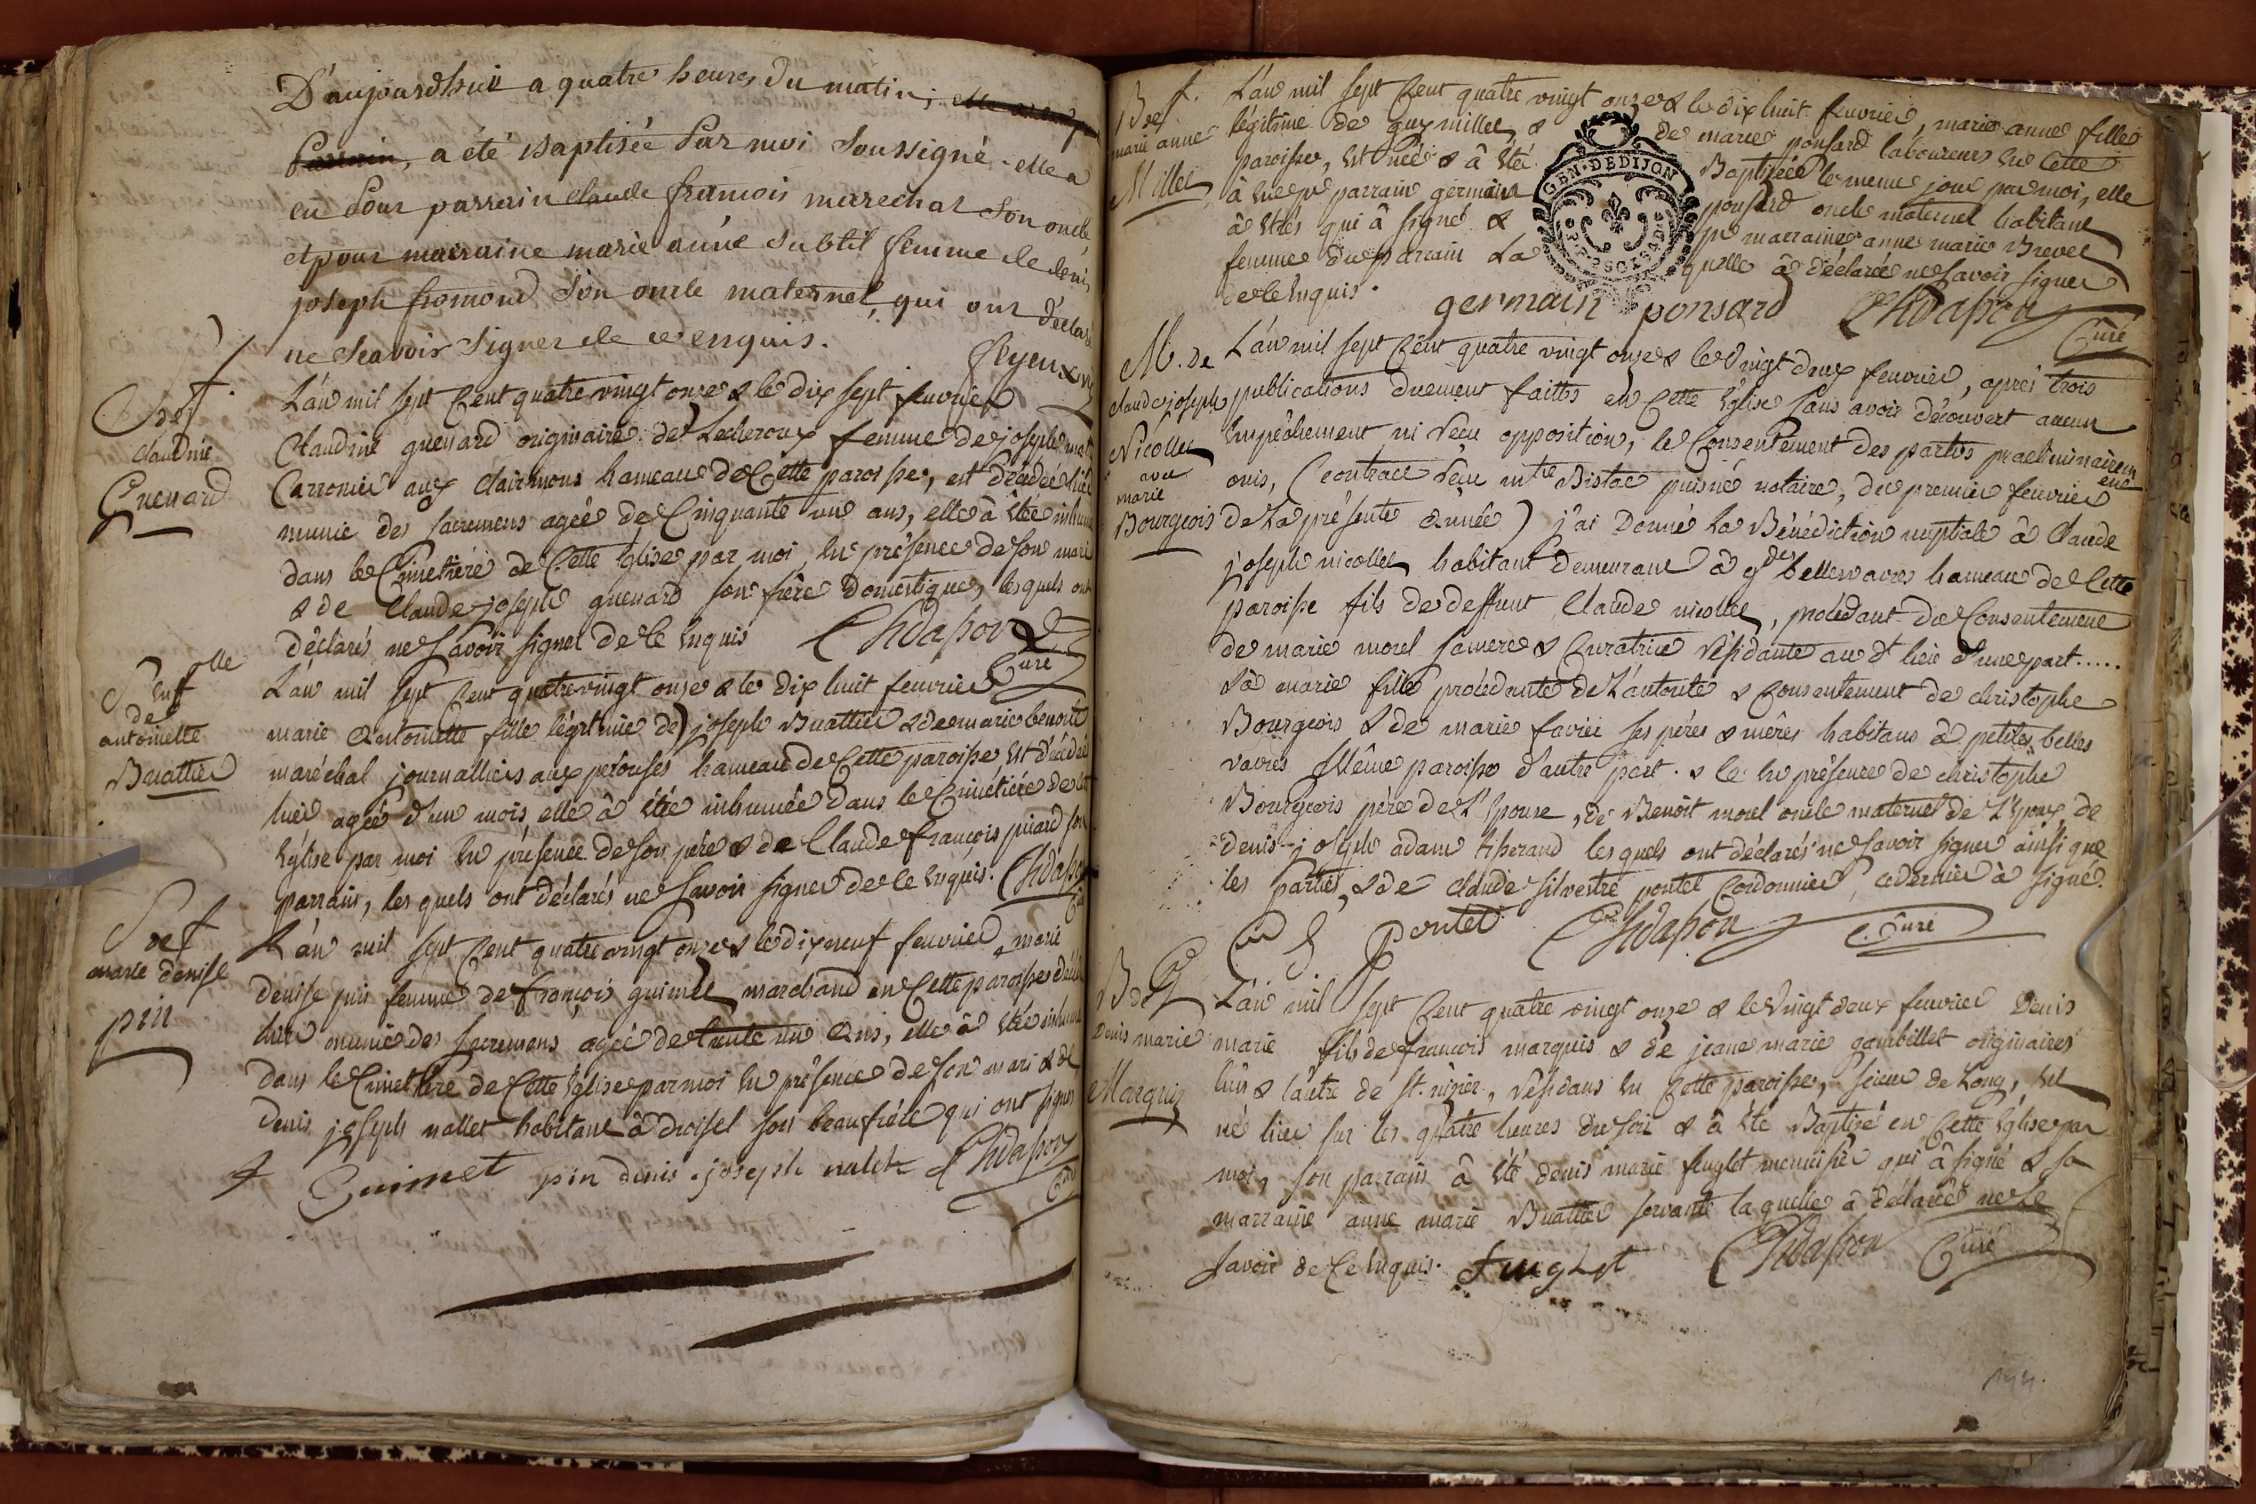 D'aujourdhuit a quatre heures du matin;
parrain, a été Baptisée Par moi Soussigné. elle a
eu Pour parrain claude francois marechal Son oncle
et pour marraine marie anne Subtil femme de denis
joseph fromond Son oncle maternel, qui ont déclaré
ne Scavoir Signer de ce enquis.
S de f.
claudine
Guenard
L'an mil sept Cent quatre vingt onze & le dix sept feuvrier
Claudine guenard originaire de Lecheroux femme de joseph
Carronier aux clairmons hameau de Cette paroisse, est décédée hier
munie des sacremens agée de Cinquante un ans, elle â êtée inhumée
dans le Cimetiere de Cette Eglise par moi, En présence de son mari
& de Claude joseph guenard son frère domestique, lesquels ont
déclarés ne Savoir signer de Ce Enquis Chidasson
Curé
S. Enff
olle
de
antoinette
Buattier
L'an mil sept Cent quatre vingt onze & le dix huit feuvrier
marie Antoinette fille légitime de joseph Buattier & de marie benoit
maréchal journalliers aux pelouses hameau de Cette paroisse Est décédée
hier agée d'un mois elle â êtée inhumée dans le Cimetière de cette
Eglise par moi En présence de son père & de Claude francois piard son
parrain, les quels ont déclarés ne Savoir signer de Ce Enquis. Chidasson
S de f
marie denise
pin
L'an mil sept Cent quatre vingt onze & le dix neuf feuvrier marie
denise pin femme de françois guimet marchand en Cette paroisse décédée
hier munie des sacremens agée de trente un Ans, elle â êtée inhumée
dans le Cimetiere de Cette Eglise par moi En présence de son mari & de
denis joseph nallet habitant â droisel son beaufrère qui ont signés
Guimet pin denis joseph nalet Chidasson
Curé
B de f.
marie anne
Millet
L'an mil sept Cent quatre vingt onze & le dix huit feuvrier, marie anne fille
légitime de guy millet & de marie ponsard laboureurs En Cette
paroisse, Est née & â êté Baptisée le meme jour par moi, elle
à Eue pr parrain germain ponsard oncle maternel habitant
â qui â signé & pr marraine anne marie Brevet
femme du parrain La quelle â déclarée ne Savoir signer
de Ce Enquis.
germain ponsard Chidasson
Curé
M. de
claude joseph
Nicollet
avec
marie
Bourgeois
L'an mil sept Cent quatre vingt onze & le Vingt deux feuvrier, après trois
publications duement faittes en Cette Eglise sans avoir découvert aucun
Empêchement ni réçu opposition, le Consentement des parties praeliminairem
ent
ouis, (contract réçu mtre Bistac puisné notaire, du premier feuvrier
de La présente Année) j'ai Donné La Bénédiction nuptiale â Claude
joseph nicollet habitant demeurant â gdes bellesvavres hameau de Cette
paroisse fils de deffunt Claude nicollet, procédant du Consentement
de marie morel sa mere & Curatrice résidante au dt lieu d'une part.....
& â marie fille procédante de L'autorité & Consentement de christophe
Bourgeois & de marie favier ses pères & mères habitans â petites belles
vavres Même paroisse d'autre part. & le En présence de christophe
Bourgeois père de L'Epouse, de Benoit morel oncle maternel de L'Epoux, de
denis-joseph adam tisserand lesquels ont déclarés ne Savoir signer ainsi que
les parties, & de claude silvestre pontet Cordonnier, ce dernier â signé.
Pontet Chidasson Curé
B de f
Denis marie
Marquis
L'an mil sept Cent quatre vingt onze & le Vingt deux feuvrier Denis
marie fils de francois marquis & de jeane marie gambillet originaires
l'un & l'autre de St. nizier, résidans En Cette paroisse, scieur de Long, Est
né hier sur les quatre heures du soir & â été Baptisé en Cette Eglise par
moi, son parrain â été denis marie feuglet menuisier qui â signé & sa
marraine anne marie Buattier servante laquelle â déclarée ne Le
savoir de Ce Enquis. Feuglet Chidasson Curé
GEN. DE DIJON